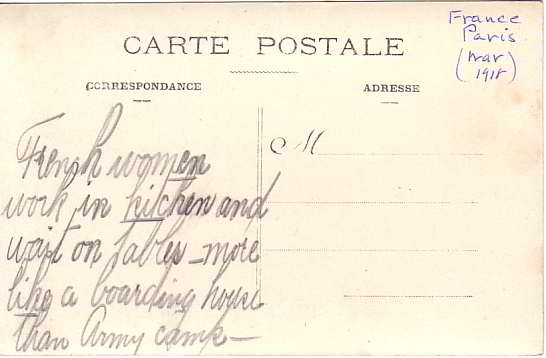 France
Paris
(War)
1918
CARTE POSTALE
CORRESPONDANCE
ADRESSE
M
French women
work in kitchen and
wait on tables - more
like a boarding house
than Army camp -